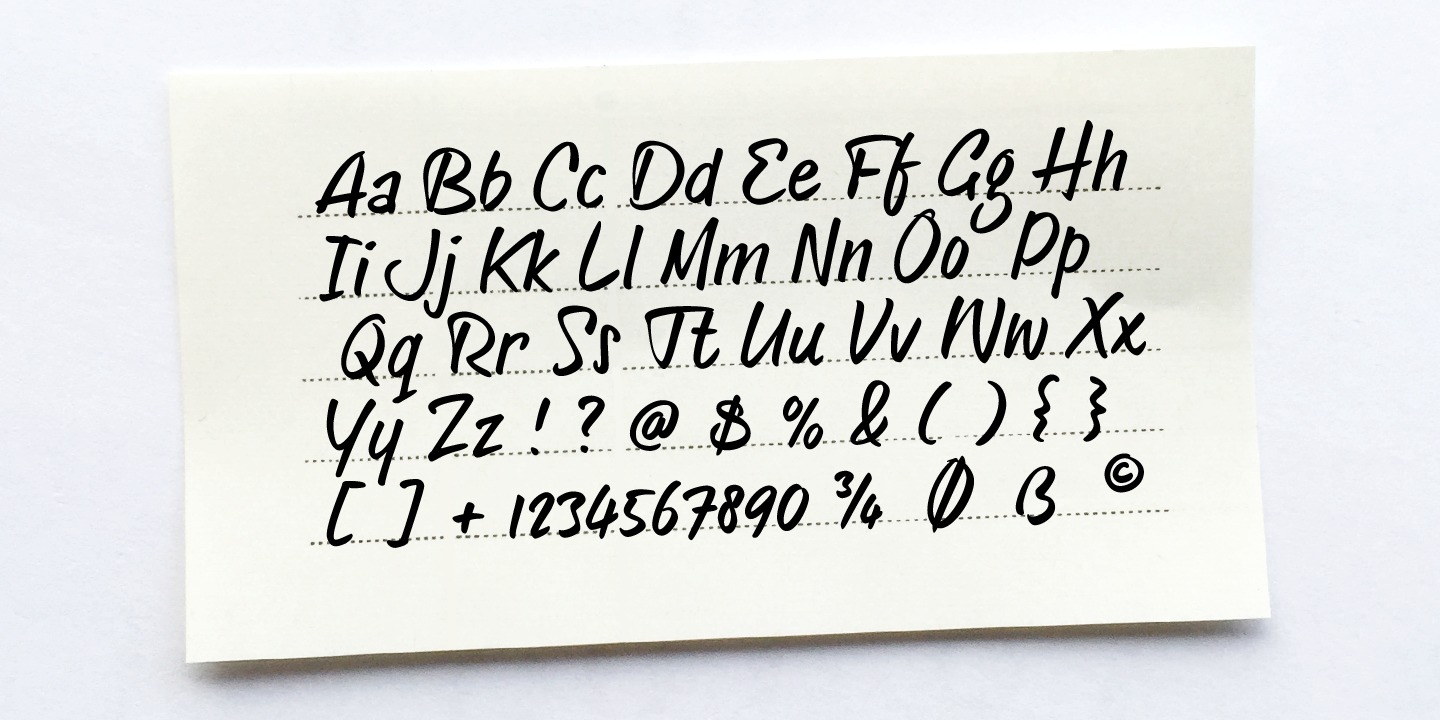 Aa Bb Cc Dd Ee Ff Gg Hh
Ii Jj Kk Ll Mm Nn Oo Pp
Qq Rr Ss Tt Uu Vv Ww Xx
Yy Zz ! ? @ $ % & ( ) { }
[ ] + 1234567890 ¾ Ø ß ©